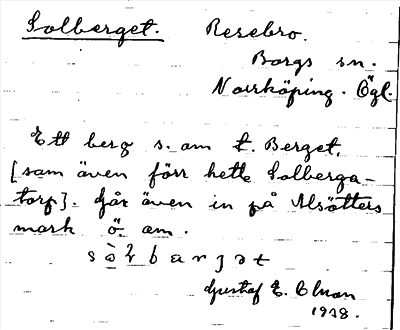 Solberget. Resebro.
Borgs sn.
Norrköping. Ögl.
Ett berg s. om t. Berget,
[som även förr hette Solberga-
torp]. Går även in på Alsätters
mark ö. om.
Gustaf E.
1938.